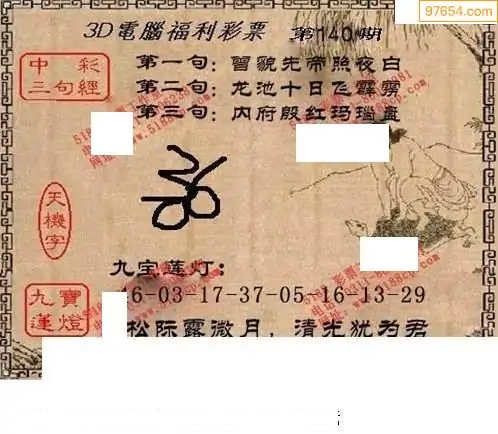 97654.com
3D電腦福利彩票 第140期
中彩三句經
第一句:曾貌先帝照夜白
第二句:龙池十日飞霹雳
第三句:内府殷红玛瑙盘
天機字
九宝莲灯:
九寶蓮燈
16-03-17-37-05-16-13-29
松际露微月,清光犹为君